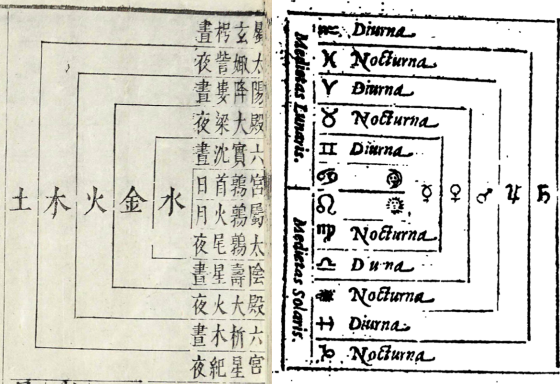 屬太陽殿六宮屬太陰殿六宮
玄娵降大實鶉鶉鶉壽大析星
枵訾婁梁沈首火尾星火木紀
晝夜晝夜晝日月夜晝夜晝夜
水
金
火
木
土
Medietas Lunaris.
Medietas Solaris.
♒ Diurna
♓ Nocturna
♈ Diurna
♉ Nocturna
♊ Diurna
♋ ☾
♌ ☉
♍ Nocturna
♎ Du na
♏ Nocturna
♐ Diurna
♑ Nocturna
☿ ♀ ♂ ♃ ♄